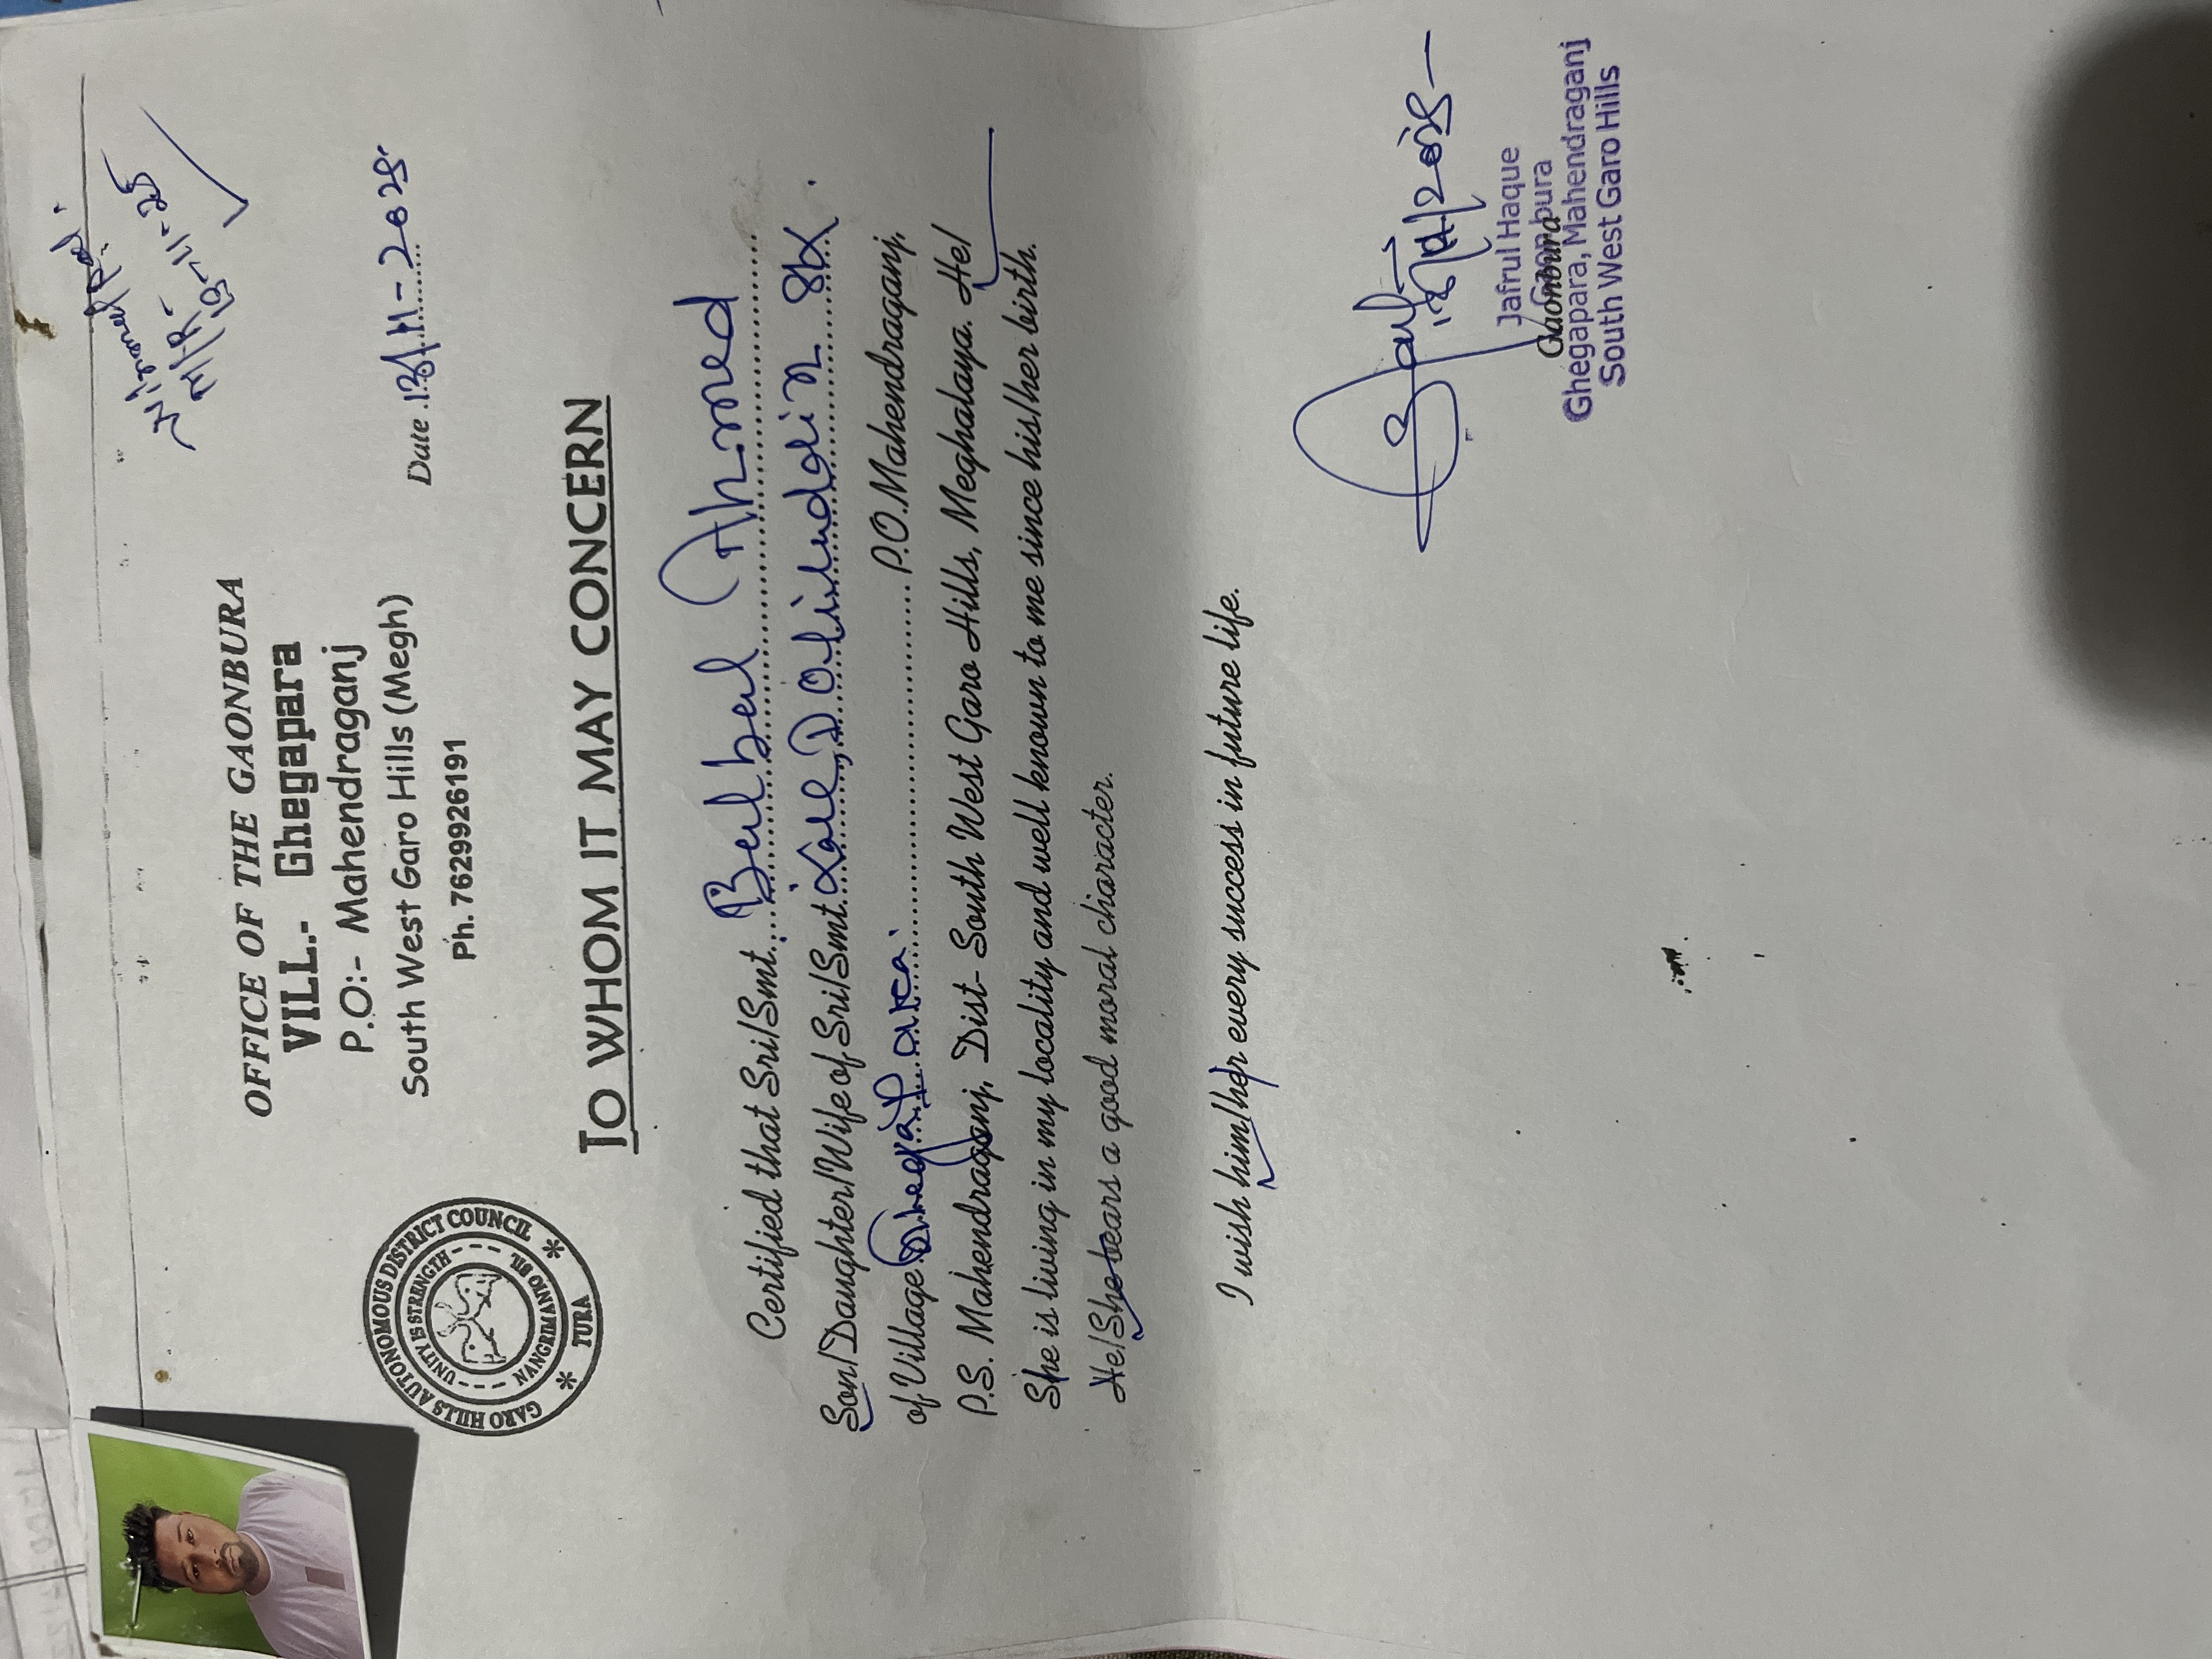 OFFICE OF THE GAONBURA
VILL.- Ghegapara
P.O:- Mahendraganj
South West Garo Hills (Megh)
Ph. 7629926191
GARO HILLS AUTONOMOUS DISTRICT COUNCIL
UNITY IS STRENGTH
TURA
Date 13/11-2025
TO WHOM IT MAY CONCERN
Certified that Sri/Smt. Bulbul Ahmed
Son/Daughter/Wife of Sri/Smt.
of Village P.O. Mahendraganj,
P.S. Mahendraganj, Dist- South West Garo Hills, Meghalaya. He/
She is living in my locality and well known to me since his/her birth.
He/She bears a good moral character.
I wish him/her every success in future life.
Jafrul Haque
Gaonbura
Ghegapara, Mahendraganj
South West Garo Hills